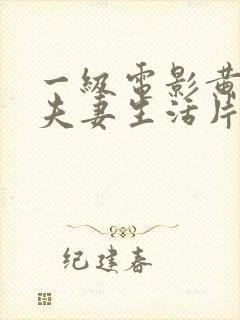 一级电影黄
夫妻生活片
纪建春